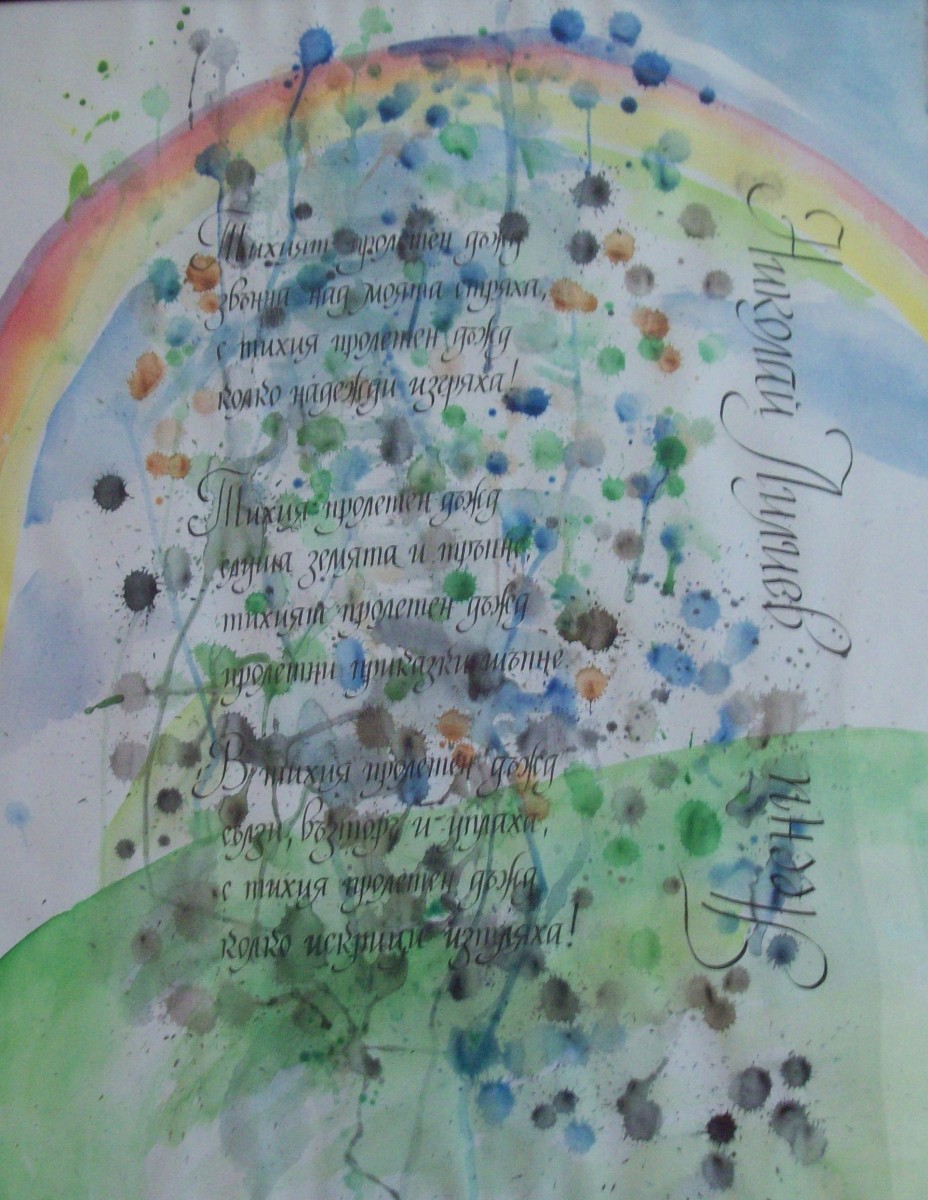 Тихият пролетен дъжд
звънна над моята стряха,
с тихия пролетен дъжд
колко надежди изгряха!
Тихия пролетен дъжд
слуша земята и тръпне,
тихият пролетен дъжд
пролетни приказки шъпне.
В тихия пролетен дъжд
сълзи, възторг и уплаха,
с тихия пролетен дъжд
колко искрици изтляха!
Николай Лилиев